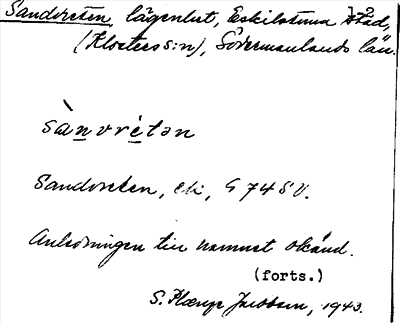 Sandvreten, lägenhet, Eskilstuna stad,
(Klosters s:n), Södermanlands län.
sànvrétən
Sandvreten, ek, G 74 SV.
Anledningen till namnet okänd.
(forts.)
S. Plænge Jacobson, 1943.